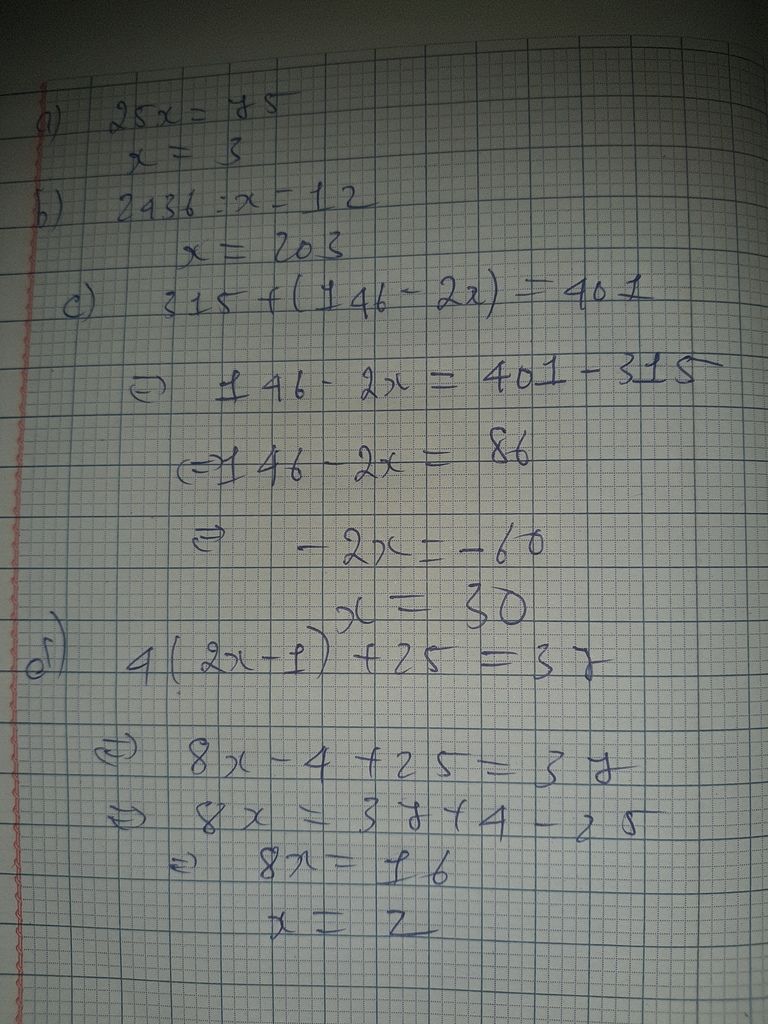 a) 25x = 75
x = 3
b) 2436 : x = 12
x = 203
c) 315 + (146 - 2x) = 401
⇔ 146 - 2x = 401 - 315
⇔ 146 - 2x = 86
⇔ - 2x = - 60
x = 30
d) 4(2x - 1) + 25 = 37
⇔ 8x - 4 + 25 = 37
⇔ 8x = 37 + 4 - 25
⇔ 8x = 16
x = 2